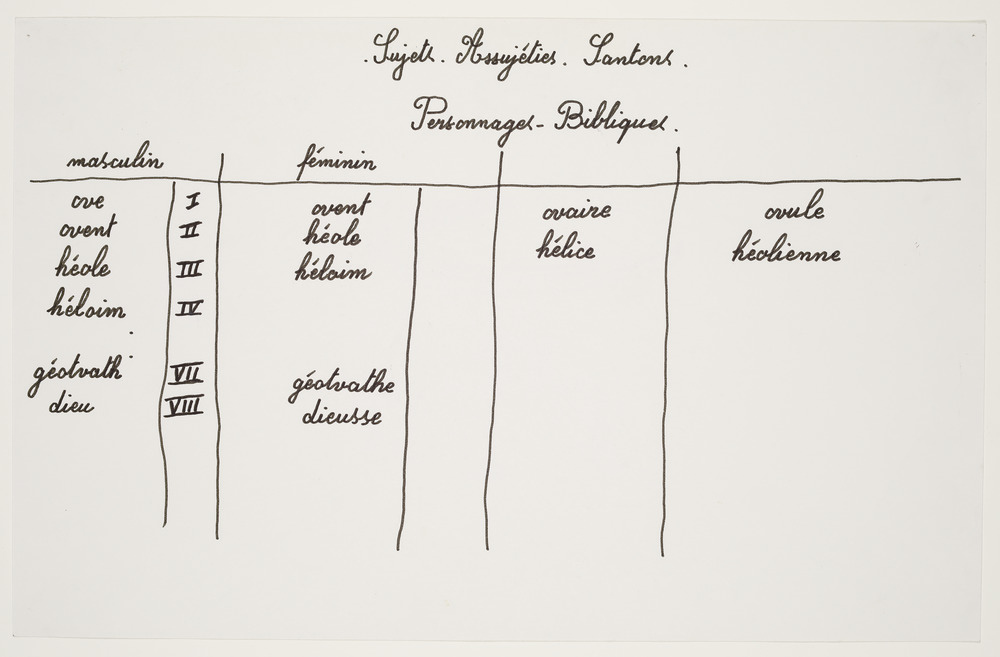 . Sujets . Assujéties . Santons .
Personnages - Bibliques .
masculin féminin
ove I ovent ovaire ovule
ovent II héole hélice héolienne
héole III héloim
héloim IV
géotvath VII géotvathe
dieu VIII dieusse